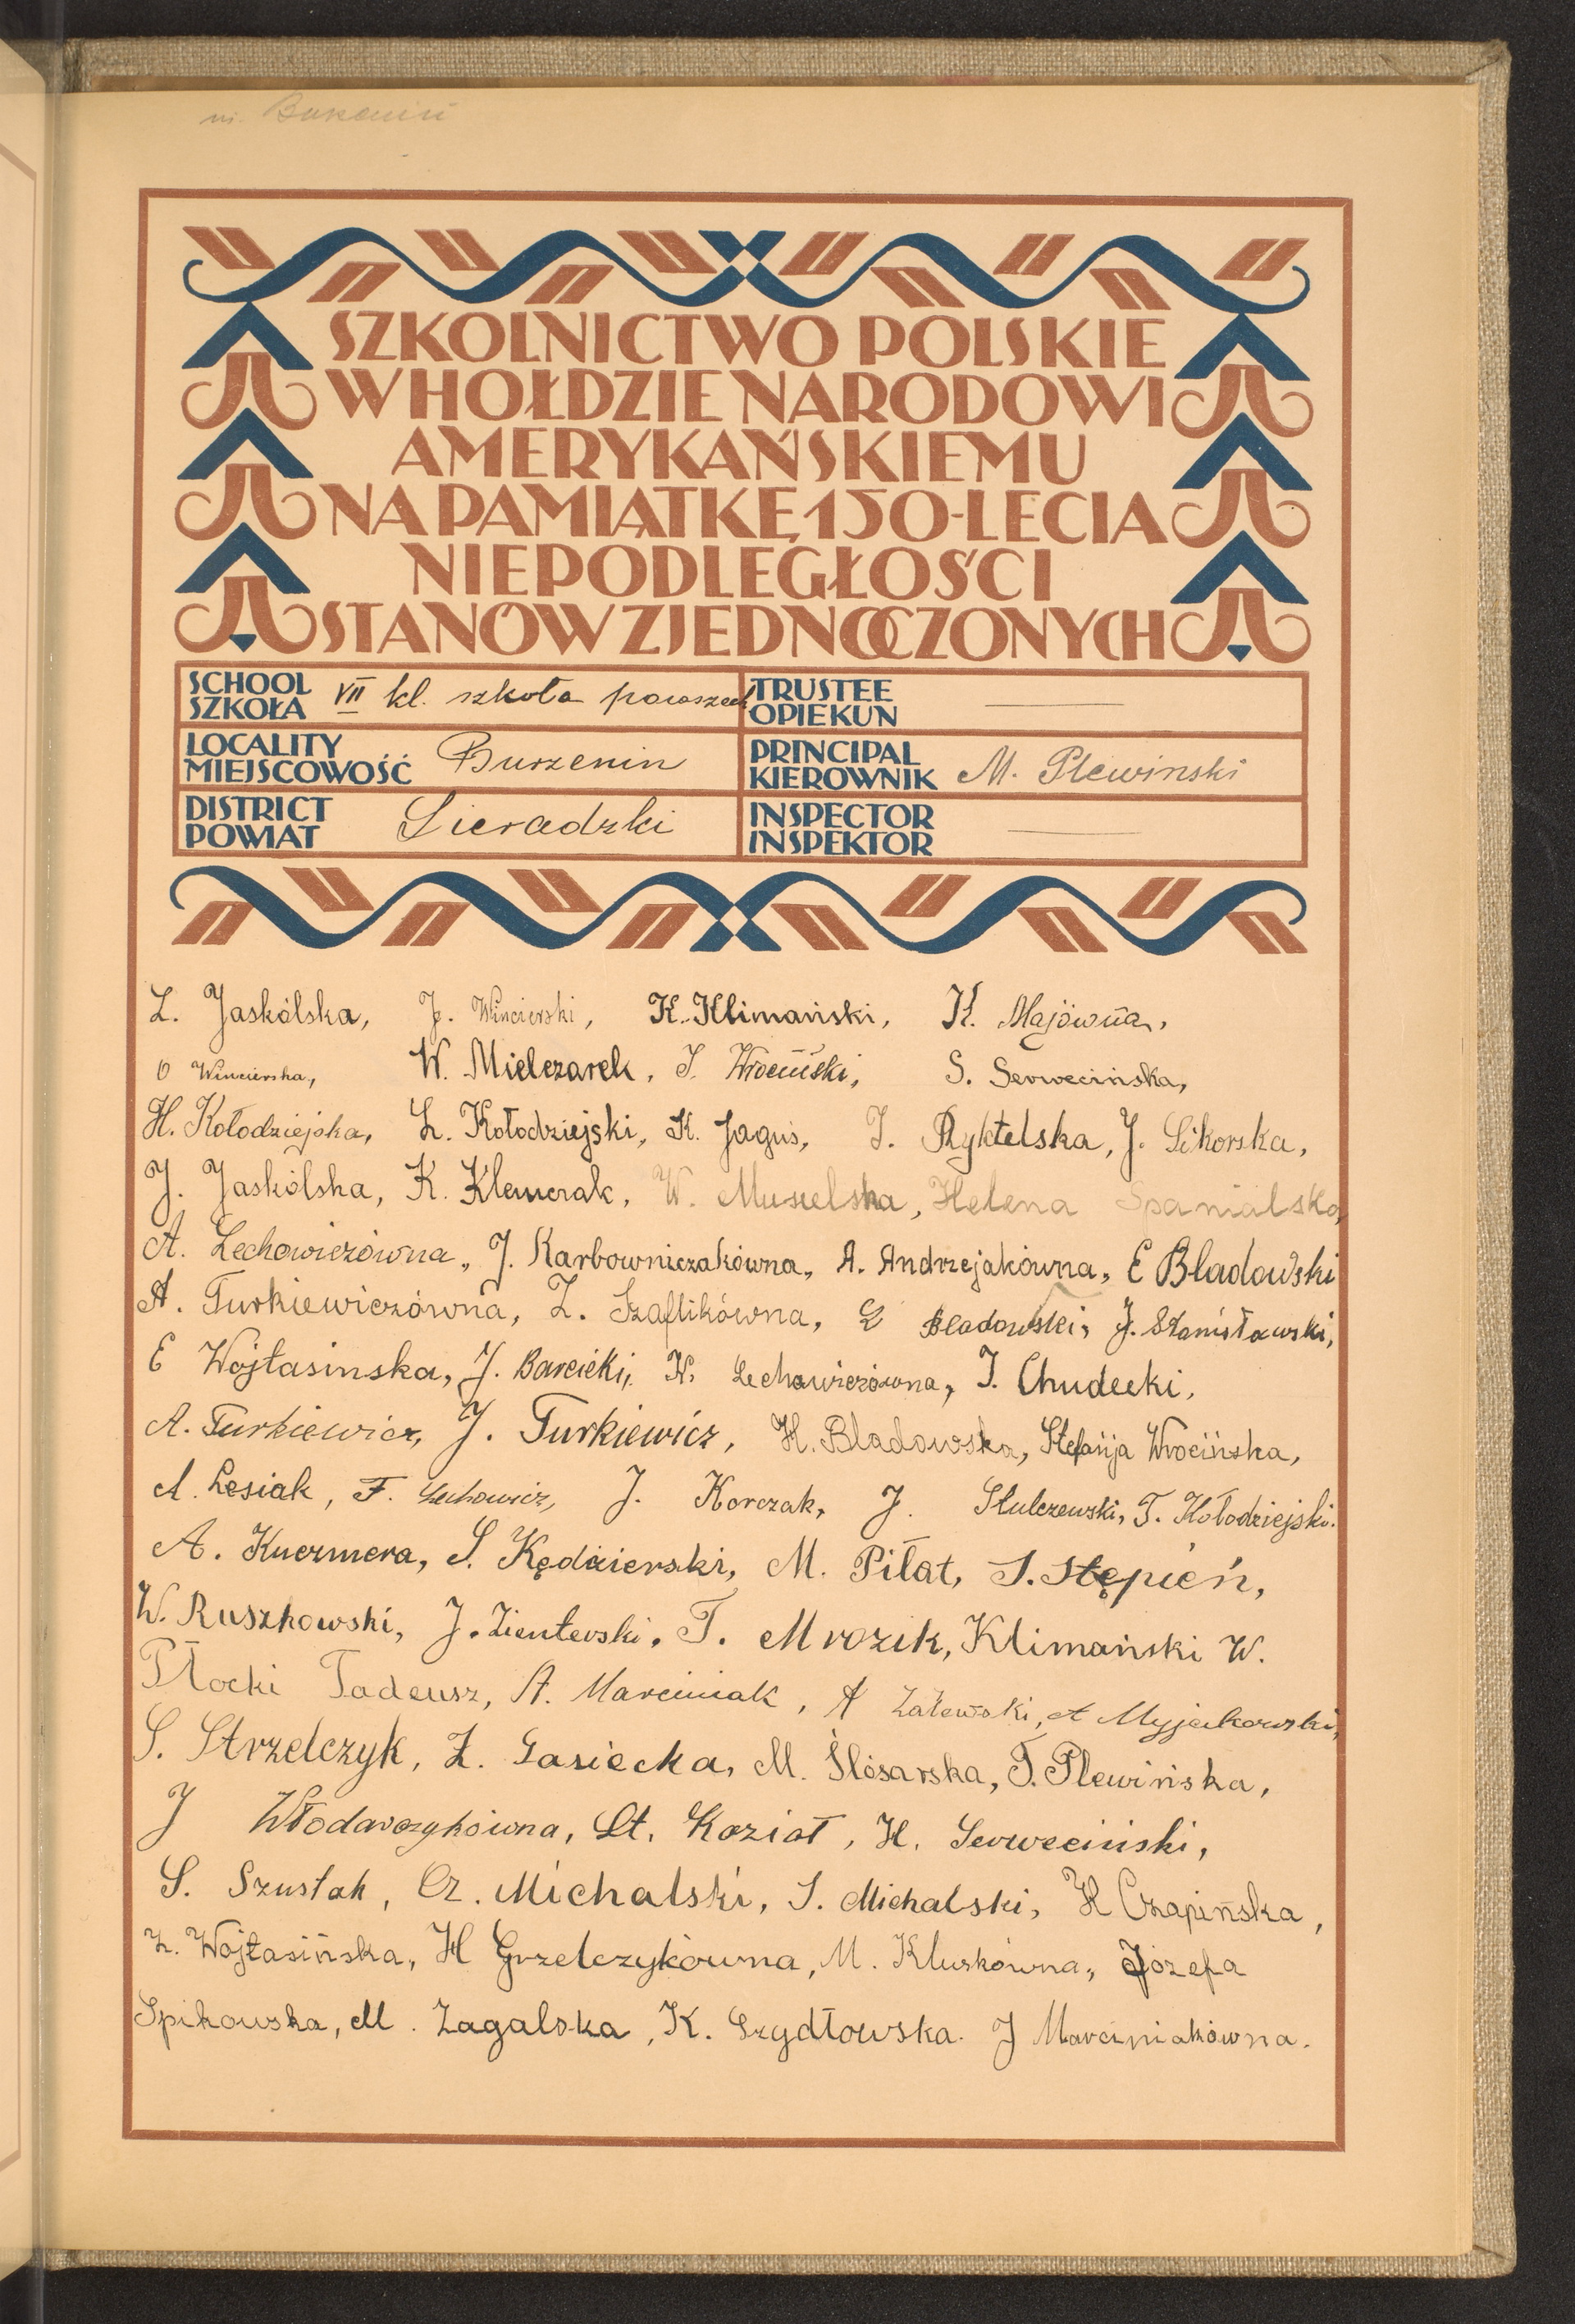 m. Burzenin
SZKOLNICTWO POLSKIE
W HOŁDZIE NARODOWI
AMERYKAŃSKIEMU
NA PAMIĄTKĘ 150-LECIA
NIEPODLEGŁOŚCI
STANÓW ZJEDNOCZONYCH
SCHOOL
SZKOŁA VII kl. szkoła powszech
TRUSTEE
OPIEKUN
LOCALITY
MIEJSCOWOŚĆ Burzenin
PRINCIPAL
KIEROWNIK M. Plewinski
DISTRICT
POWIAT Sieradzki
INSPECTOR
INSPEKTOR
Z. Jaskólska, J. Wincierski, K. Klimański, K. Majówna,
O Wincierska, W. Mielczarek, J. Wrociński, S. Serwecińska,
H. Kołodziejska, Z. Kołodziejski, K. Jaguś, J. Ryktelska, J. Sikorska,
J. Jaskólska, K. Klemczak, W. Musielska, Helena Spanialska,
A. Lechowiczówna, J. Karbowniczakówna, A. Andrzejakówna, E Bladowski
A. Turkiewiczówna, Z. Szaflikówna, E Bladowski, J. Stanisławski,
E Wojtasinska, J. Barcicki, K. Lechowiczówna, J. Chudecki,
A. Turkiewicz, J. Turkiewicz, H. Bladowska, Stefanja Wrocińska,
A. Lesiak, F. Lechowicz, J. Korczak, J. Stulczewski, T. Kołodziejski.
A. Kuczmera, S. Kędzierski, M. Piłat, S. Stępień,
W. Ruszkowski, J. Zienterski, T. Mrozik, Klimański W.
Płocki Tadeusz, A. Marciniak, A Zalewski, A Myjakowski,
S. Strzelczyk, Z. Gasiecka, M. Ślósarska, T. Plewińska,
J Włodarczykówna, St. Kozioł, H. Serweciński,
S. Szustak, Cz. Michalski, S. Michalski, H Czapińska,
Z. Wojtasińska, H Grzelczykówna, M. Kluskówna, Józefa
Spikowska, M. Zagalska, K. Szydłowska. J Marciniakówna.